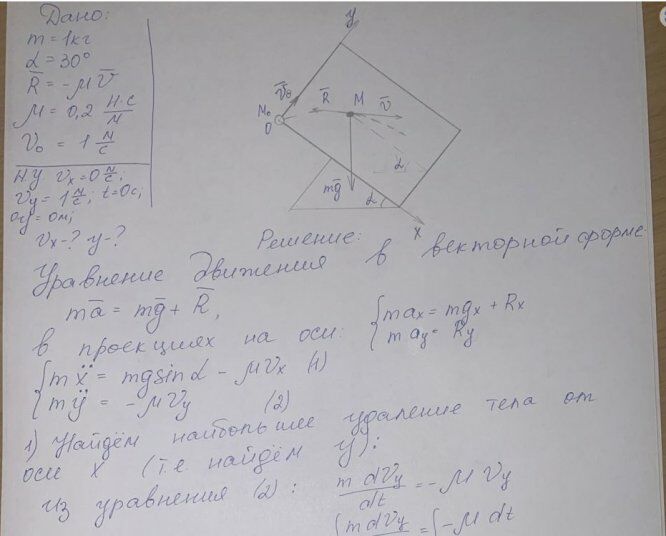 Дано:
m = 1кг
α = 30°
R̅ = -μV̅
μ = 0,2 Н·с/м
V₀ = 1 м/с
Н.У. Vx = 0 м/с;
Vy = 1 м/с; t = 0с;
y = 0м;
Vx-? y-?
y
V̅₀
M₀
O
R̅
M
V̅
α
mg̅
α
x
Решение:
Уравнение движения в векторной форме:
ma̅ = mg̅ + R̅,
в проекциях на оси: {max = mgx + Rx
may = Ry
{mẍ = mg sin α - μVx (1)
mÿ = -μVy (2)
1) Найдём наибольшее удаление тела от
оси x (т.е. найдём y):
Из уравнения (2): m dVy/dt = -μ Vy
∫ m dVy = ∫ -μ dt